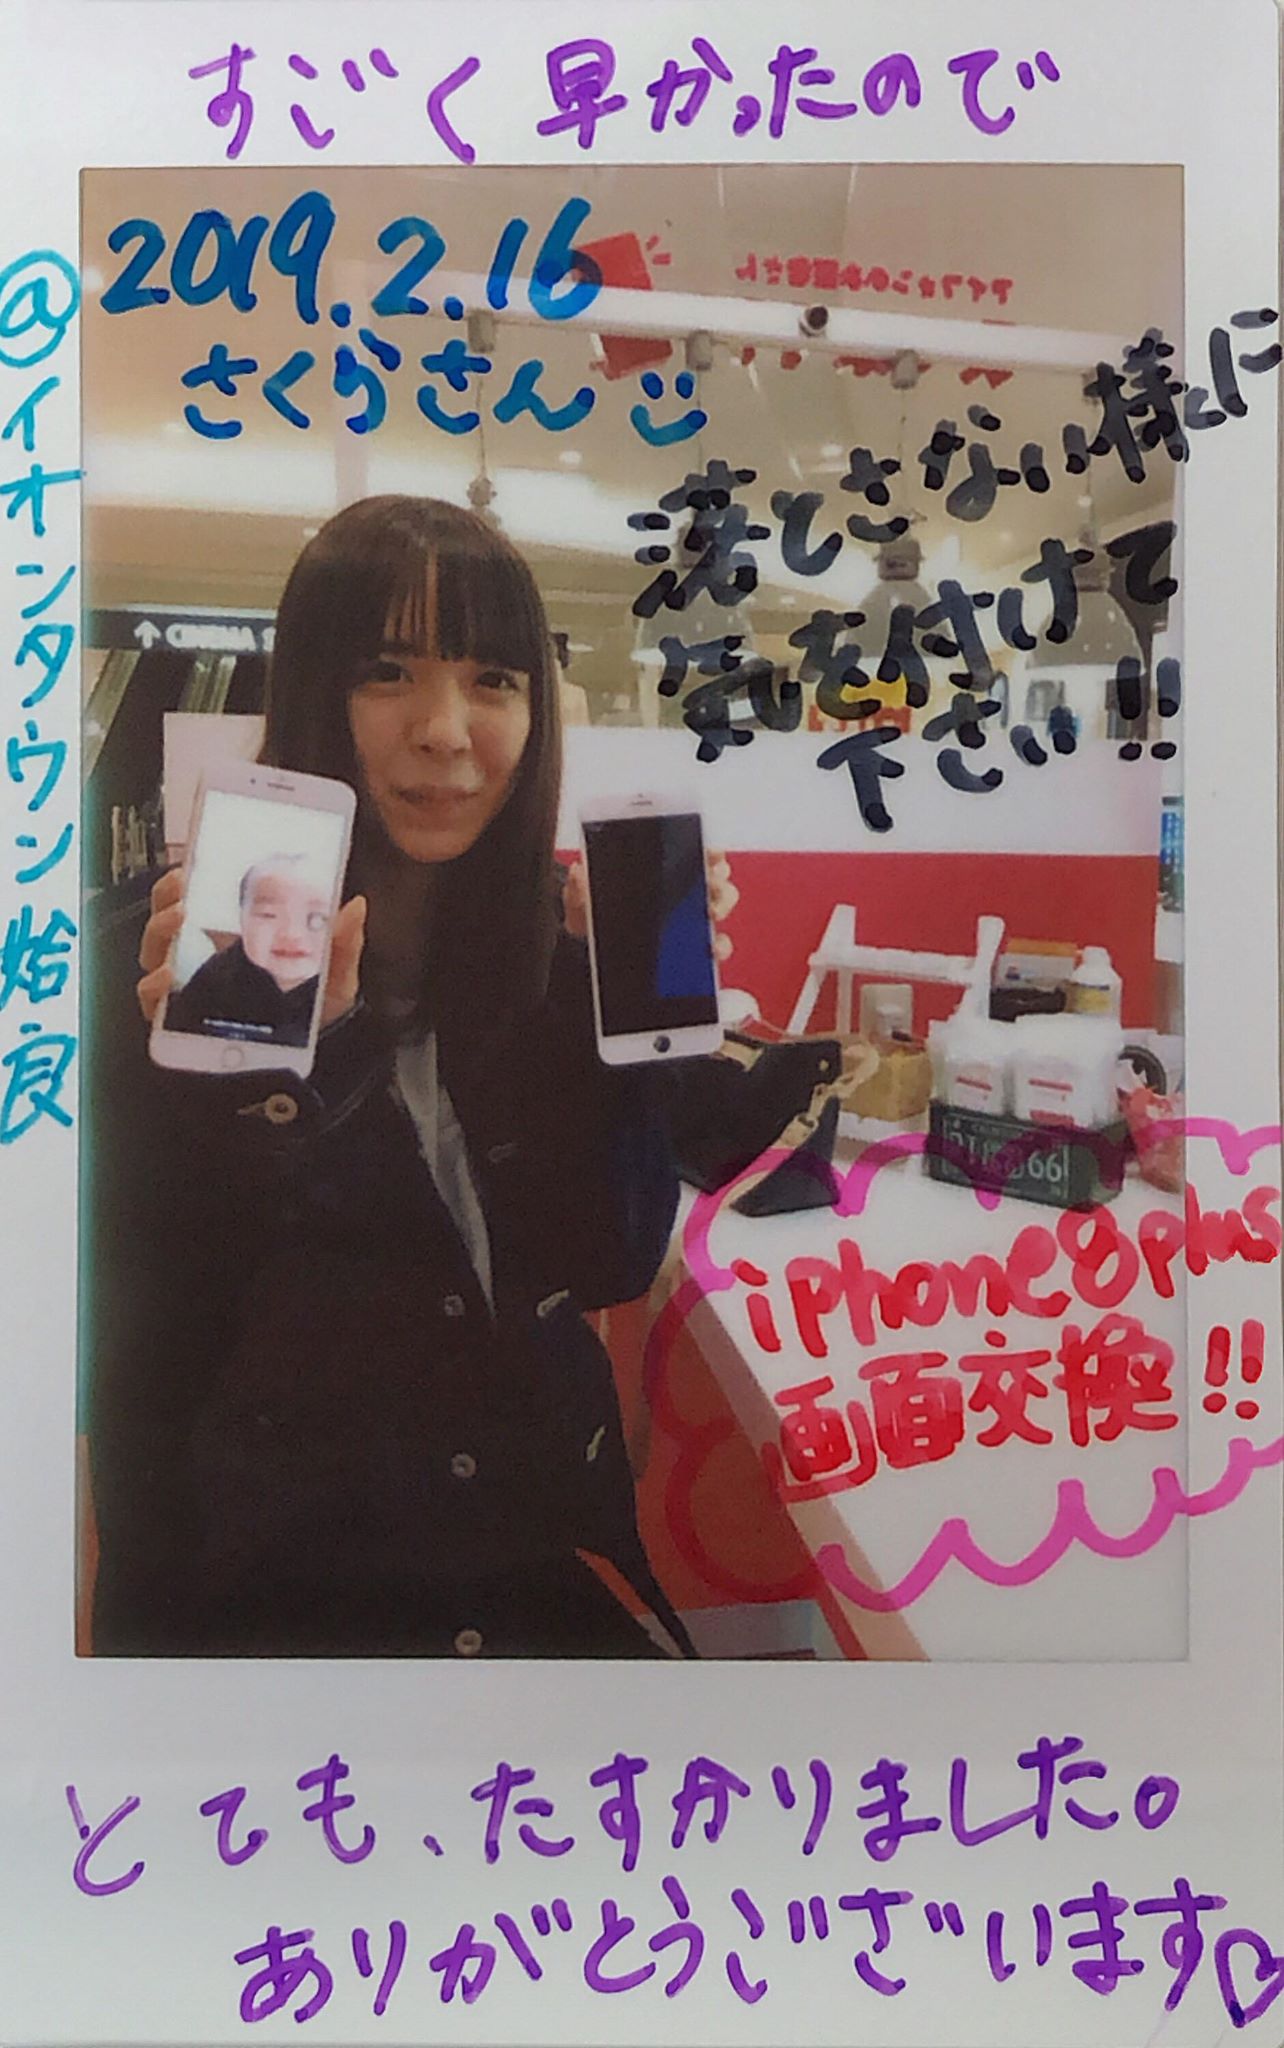 すごく早かったので
2019.2.16
さくらさん
@イオンタウン姶良
落とさない様に
気を付けて
下さい!!
↑ CINEMA
66
iphone8plus
画面交換!!
とても、たすかりました。
ありがとうございます♡